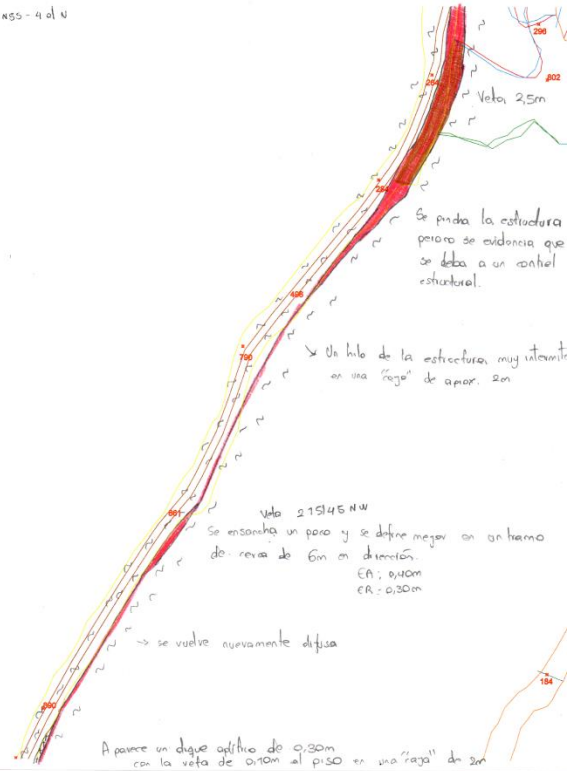 N55-4 al N
296
264
602
Veta 2,5m
284
Se pincha la estructura
pero no se evidencia que
se deba a un control
estructural.
498
790
Un hilo de la estructura, muy intermite
en una "caja" de aprox. 2m
661
Veta 215/45 NW
Se ensancha un poco y se define mejor en un tramo
de cerca de 6m en dirección.
EA: 0,40m
ER: 0,30m
→ se vuelve nuevamente difusa
184
590
Aparece un dique aplítico de 0,30m
con la veta de 0,10m al piso en una "caja" de 2m